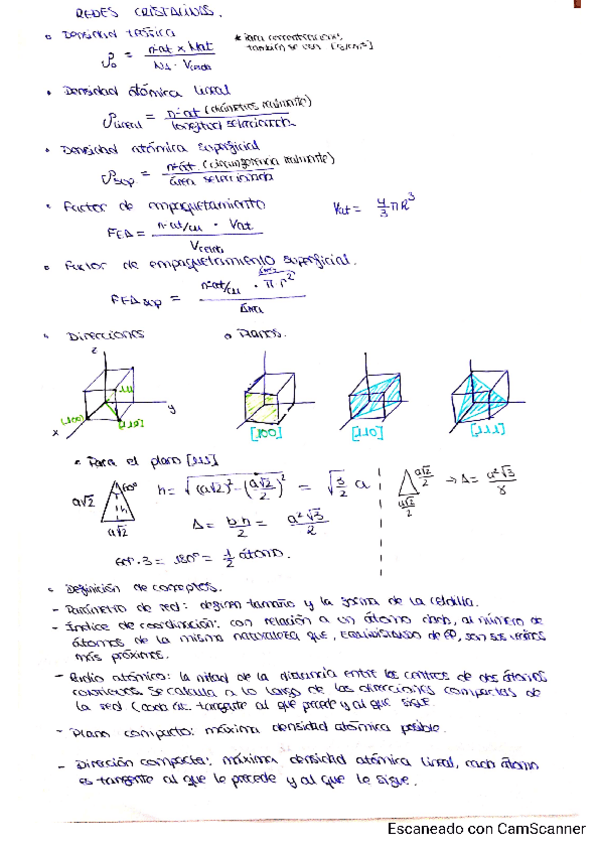 REDES CRISTALINAS.
Densidad teórica
* Para concentraciones
también se usa
ρ = nºat × Mat / NA · Vcelda
Densidad atómica lineal
ρlineal = nºat (diámetros realmente) / longitud seleccionada
Densidad atómica superficial
ρsup = nºat (circunferencia realmente) / área seleccionada
Factor de empaquetamiento
Vat = 4/3 πR³
FEA = nºat/cu · Vat / Vcelda
Factor de empaquetamiento superficial.
FEAsup = nºat/cu · π·r² / área
Direcciones
Planos.
z
111
[100]
[110]
x
y
[100]
[110]
[111]
Para el plano [111]
a√2
60º
h
a√2
h = √((a√2)² - (a√2/2)²) = √(3/2) a
A = b·h/2 = a²√3/2
60º·3 = 180º = 1/2 átomo.
a√2/2
a√2/2
→ A = a²√3/8
Definición de conceptos.
- Parámetro de red: definen tamaño y la forma de la celdilla.
- Índice de coordinación: con relación a un átomo dado, al número de
átomos de la misma naturaleza que, equidistando de él, son sus vecinos
más próximos.
- Radio atómico: la mitad de la distancia entre los centros de dos átomos
Se calcula a lo largo de las direcciones compactas de
la red (cada at. tangente al que precede y al que sigue
- Plano compacto: máxima densidad atómica posible.
- Dirección compacta: máxima densidad atómica lineal, cada átomo
es tangente al que le precede y al que le sigue.
Escaneado con CamScanner